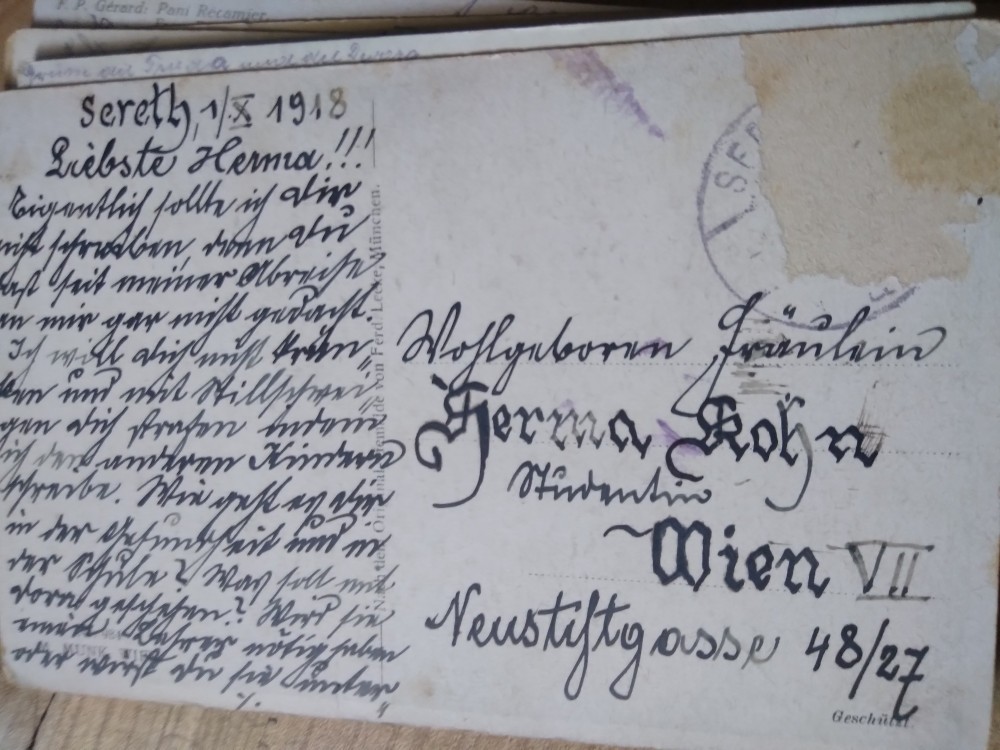 F. P. Gérard: Pani Recamier.
Sereth, 1/X 1918
Liebste Herma!!!
Eigentlich sollte ich dir
nicht schreiben, denn du
hast seit meiner Abreise
an mir gar nicht gedacht.
Ich will dich nicht krän-
ken und mit Stillschwei-
gen dich strafen indem
ich den anderen Kindern
schreibe. Wie geht es dir
in der Gesundheit und in
der Schule? Was soll mit
Dora geschehen? Wird sie
einen Lehrer nötig haben
oder wirst du sie unter-
./.
M. MUNK
von Ferd. Lecke, München.
SE
Wohlgeboren Fräulein
Herma Kohn
Studentin
Wien VII
Neustiftgasse 48/27
Geschützt.